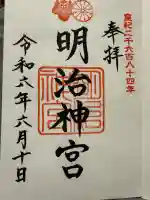 皇紀二千六百八十四年
奉拝
明治神宮
令和六年六月十日